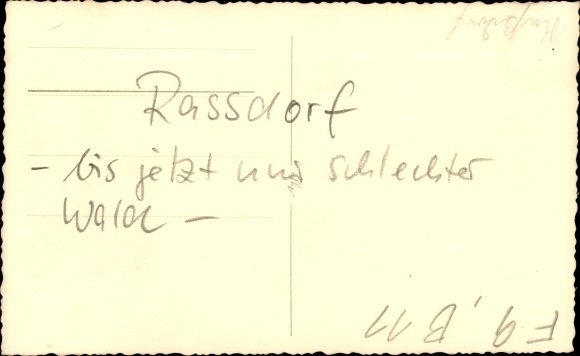 Rassdorf
- bis jetzt nur schlechter
Wald -
F9, B11